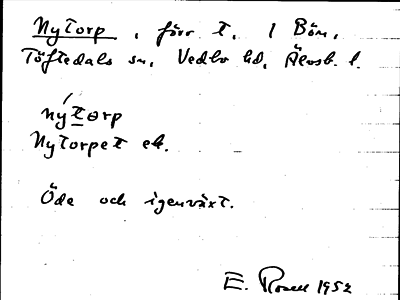 Nytorp, förr t. 1 Bön,
Töftedals sn, Vedbo hd, Älvsb. l.
nýtorp
Nytorpet ek.
Öde och igenväxt.
E. Rosell 1952